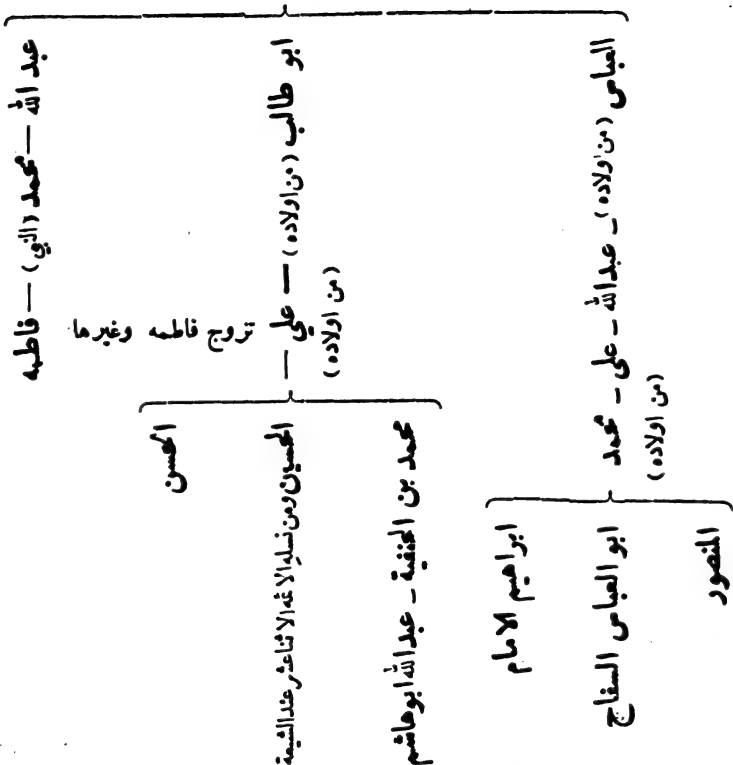 العباس (من اولاده) – عبدالله – علي – محمد (من اولاده)
المنصور
ابو العباس السفاح
ابراهيم الامام
ابو طالب (من اولاده) – علي – (من اولاده)
تزوج فاطمه وغيرها
محمد بن الحنفية – عبدالله ابو هاشم
الحسين ومن نسله الائمه الاثناعشر عند الشيعة
الحسن
عبد الله – محمد (النبي) – فاطمه